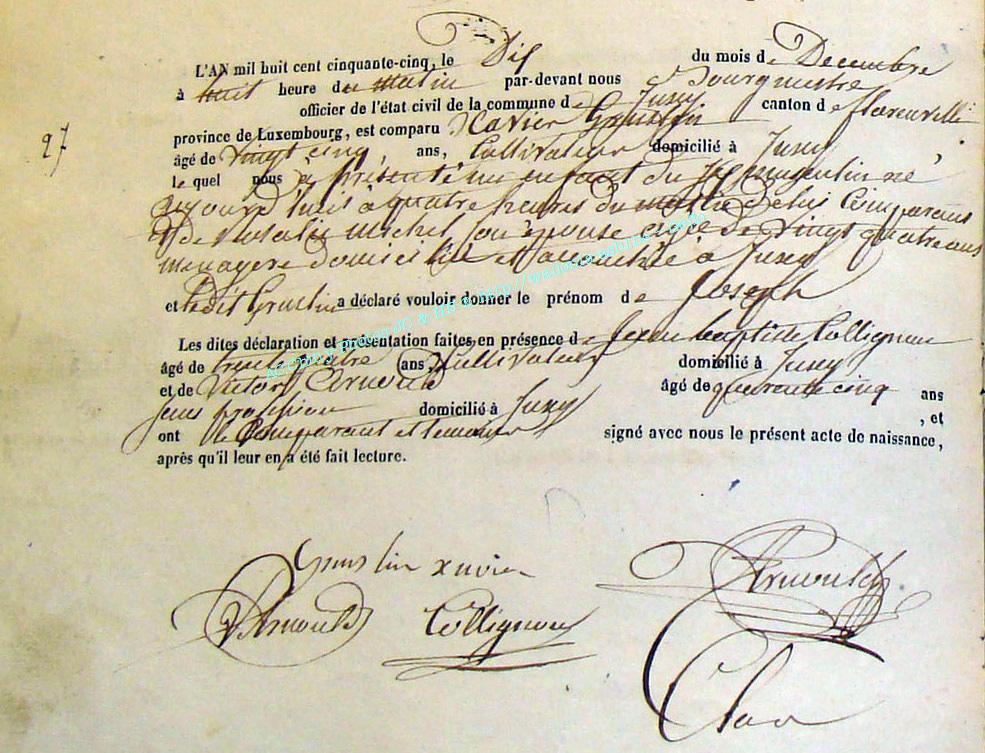 L'AN mil huit cent cinquante-cinq, le Dix du mois de Decembre
à huit heure du matin par-devant nous Bourgmestre
officier de l'état civil de la commune de Jusey canton de florenville
27
province de Luxembourg, est comparu Xavier Gruslin
âgé de vingt cinq, ans, Cultivateur domicilié à Jusey
le quel nous à présenté un enfant du sex masculin né
aujourd'huis à quatre heures du matin de lui Comparant
et de Rosalie Michel son épouse agé de vingt quatre ans
menagere domiciliée et à Jusey
et ledit Gruslin a déclaré vouloir donner le prénom de Joseph
Les dites déclaration et présentation faites en présence de Jean baptiste Collignon
âgé de trente quatre ans, Cultivateur domicilié à Jusey
et de Victor Arnould âgé de quarente cinq ans
sans profession domicilié à Jusey , et
ont le Comparant et temoins signé avec nous le présent acte de naissance,
après qu'il leur en a été fait lecture.
Gruslin xavier
VArnould Collignon Arnould